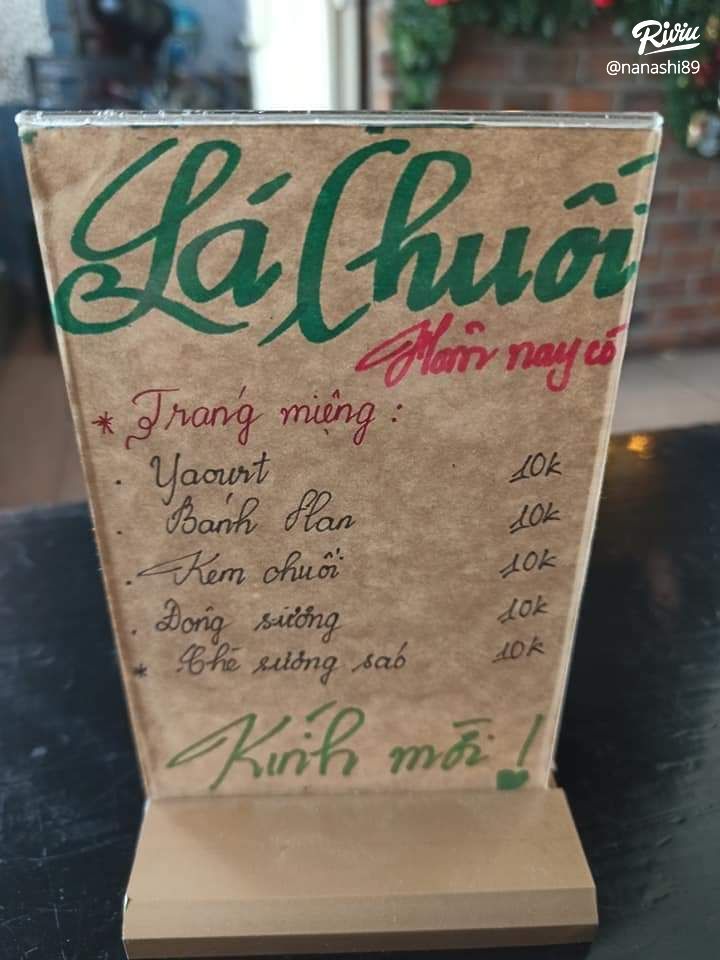 Riviu
@nanashi89
Lá Chuối
Hôm nay có
* Tráng miệng :
. Yaourt 10k
. Bánh Flan 10k
. Kem chuối 10k
. Đông sương 10k
* Chè sương sáo 10k
Kính mời !